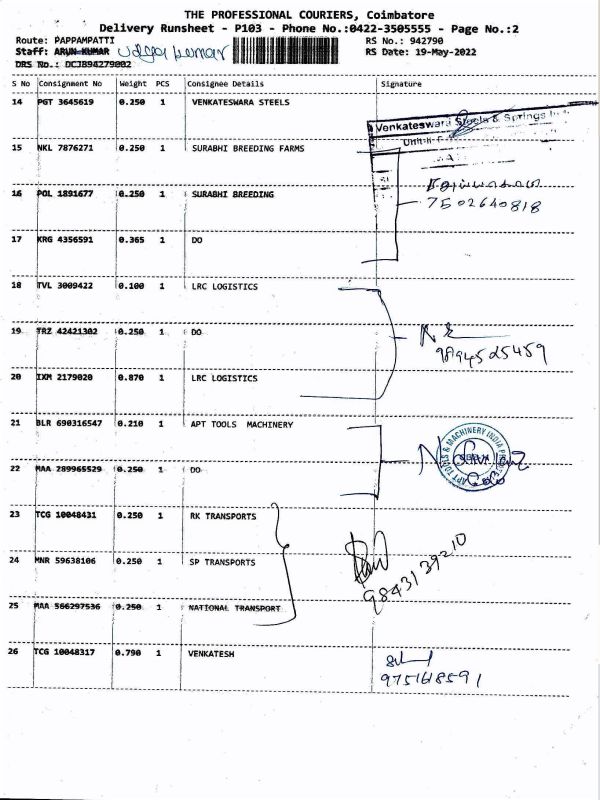 THE PROFESSIONAL COURIERS, Coimbatore
Delivery Runsheet - P103 - Phone No.:0422-3505555 - Page No.:2
Route: PAPPAMPATTI RS No.: 942790
Staff: ARUN KUMAR RS Date: 19-May-2022
DRS No.: DCJ894279002
S No Consignment No Weight PCS Consignee Details Signature
14 PGT 3645619 0.250 1 VENKATESWARA STEELS
Venkateswara Steels & Springs
15 NKL 7876271 0.250 1 SURABHI BREEDING FARMS
16 POL 1891677 0.250 1 SURABHI BREEDING
7502640818
17 KRG 4356591 0.365 1 DO
18 TVL 3009422 0.100 1 LRC LOGISTICS
19 TRZ 42421302 0.250 1 DO
9894525459
20 IXM 2179020 0.870 1 LRC LOGISTICS
21 BLR 690316547 0.210 1 APT TOOLS MACHINERY
APT TOOLS & MACHINERY INDIA
22 MAA 289965529 0.250 1 DO
23 TCG 10048431 0.250 1 RK TRANSPORTS
24 MNR 59638106 0.250 1 SP TRANSPORTS
9843139210
25 MAA 566297536 0.250 1 NATIONAL TRANSPORT
26 TCG 10048317 0.790 1 VENKATESH